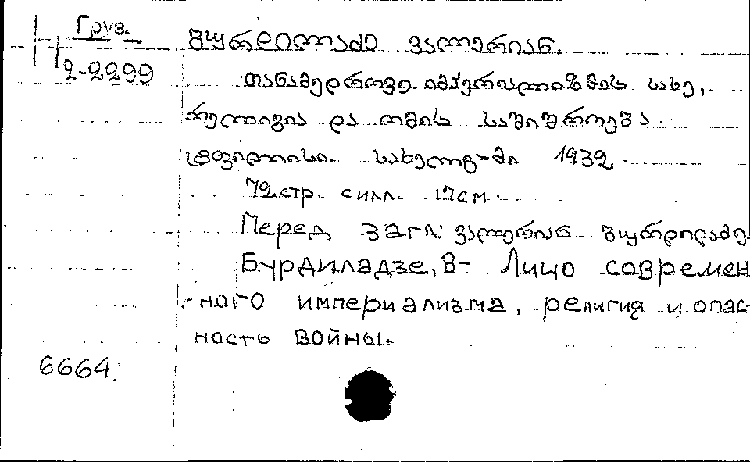 Груз.
ბურდილაძე ვალერიან.
2-2299
თანამედროვე იმპერიალიზმის სახე,
რელიგია და ომის საშიშროება.
ტფილისი. სახელგ-მი 1932
72 стр. силл. 17см.
Перед загл: ვალერიან ბურდილაძე.
Бурдиладзе, В- Лицо современ
-ного империализма, религия и опас-
ность войны.
6664.